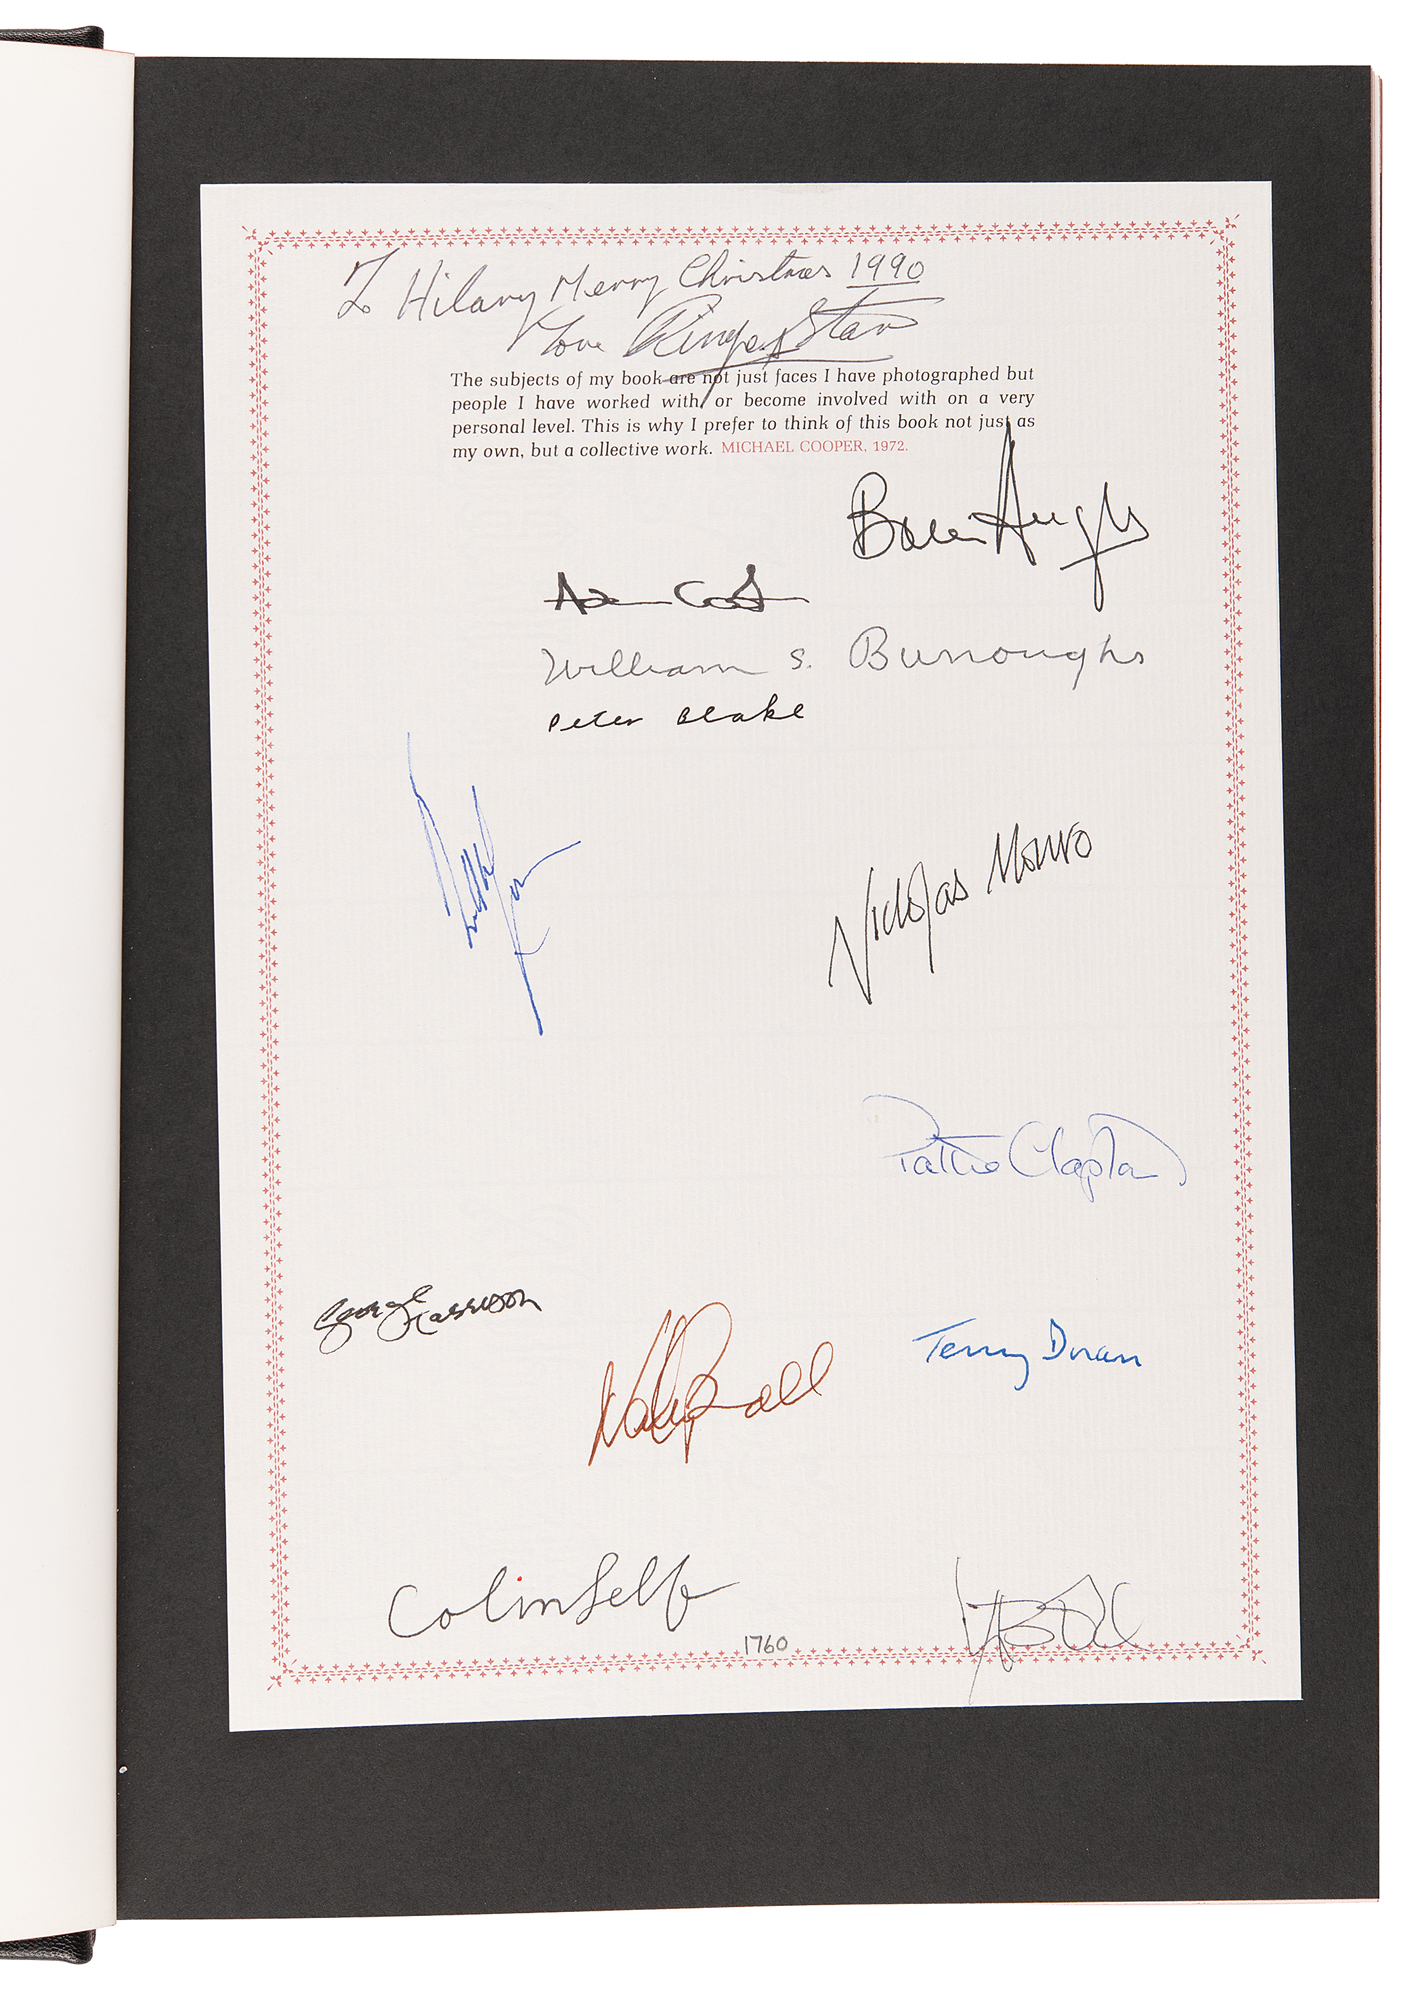 To Hilary Merry Christmas 1990
Love Ringo Starr
The subjects of my book are not just faces I have photographed but
people I have worked with, or become involved with on a very
personal level. This is why I prefer to think of this book not just as
my own, but a collective work. MICHAEL COOPER, 1972.
Adam Cooper
William S. Burroughs
Peter Blake
Nicholas Monro
Pattie Clapton
George Harrison
Terry Doran
Colin Self
1760